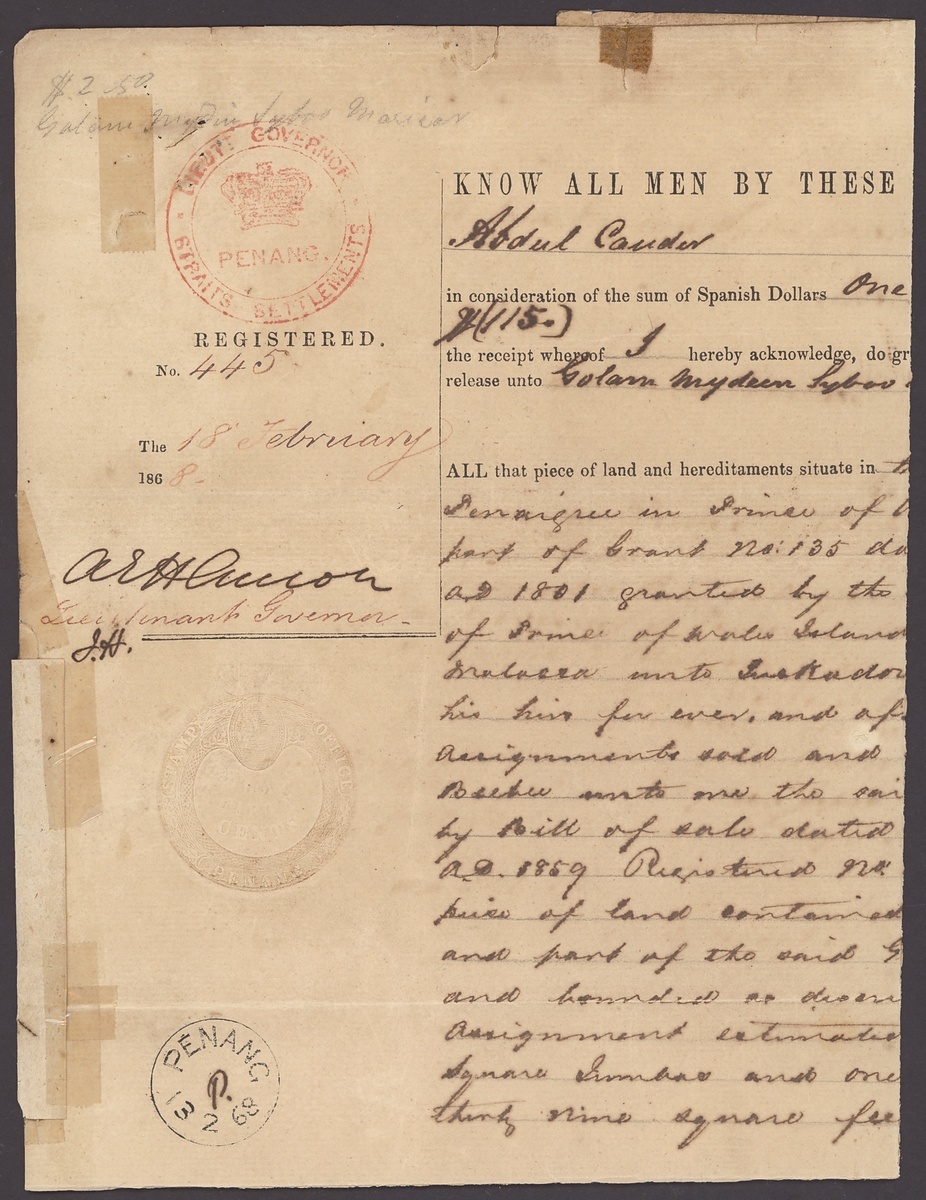 $2.50
Golam Mydin Syboo Marican
LIEUTT GOVERNOR
PENANG.
STRAITS SETTLEMENTS
REGISTERED.
No. 445
The 18 February
1868.
Lieutenant Governor
J.H.
STAMP OFFICE
PENANG
PENANG
P.
13 2 68
KNOW ALL MEN BY THESE
Abdul Cauder
in consideration of the sum of Spanish Dollars One
$(115.)
the receipt whereof I hereby acknowledge, do gr
release unto Golam Mydeen Syboo
ALL that piece of land and hereditaments situate in
in Prince of
part of Grant No: 135 da
A.D 1801 granted by the
of Prince of Wales Island
Malacca unto
his hirs for ever, and af
Assignments sold and
Beebee unto me the sai
by Bill of sale dated
A.D. 1859 Registered No.
piese of land contained
and part of the said G
and bounded as
Assignment estimated
Square Jumbas and one
thirty nine square fee